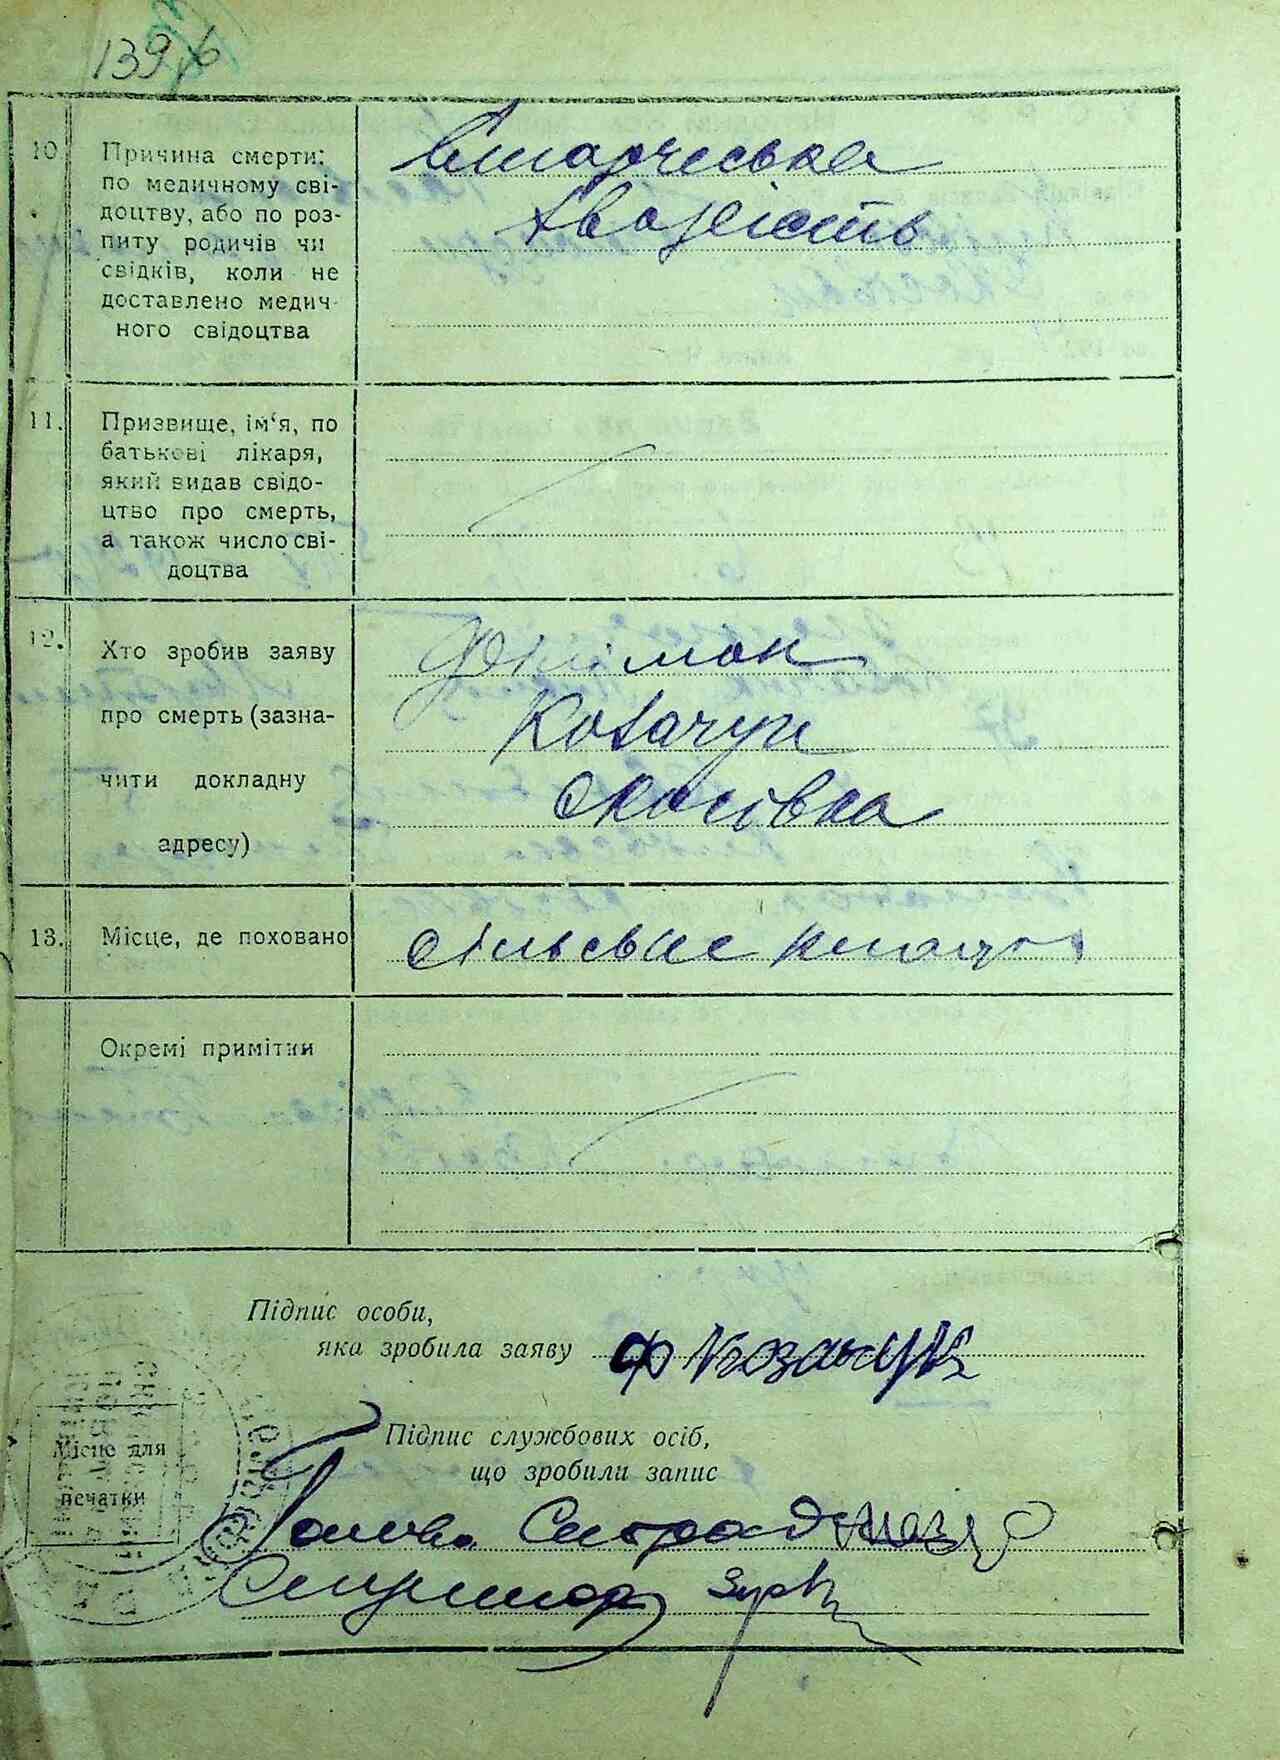 139
10. Причина смерти:
по медичному сві-
доцтву, або по роз-
питу родичів чи
свідків, коли не
доставлено медич-
ного свідоцтва
старческа
хворість
11. Призвище, ім'я, по
батькові лікаря,
який видав свідо-
цтво про смерть,
а також число сві-
доцтва
12. Хто зробив заяву
про смерть (зазна-
чити докладну
адресу)
Філімон
Козачук
13. Місце, де поховано
сільське кладу
Окремі примітки
Підпис особи,
яка зробила заяву
Ф Козачук
Підпис службових осіб,
що зробили запис
Місце для
печатки
Голова Сільради
Секретар